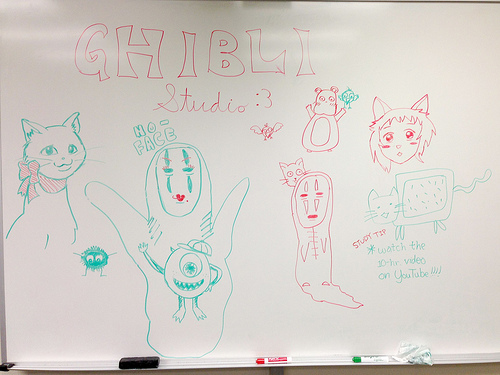 GHIBLI
Studio :3
NO-
FACE
STUDY TIP
* watch the
10-hr video
on YouTube!!!!